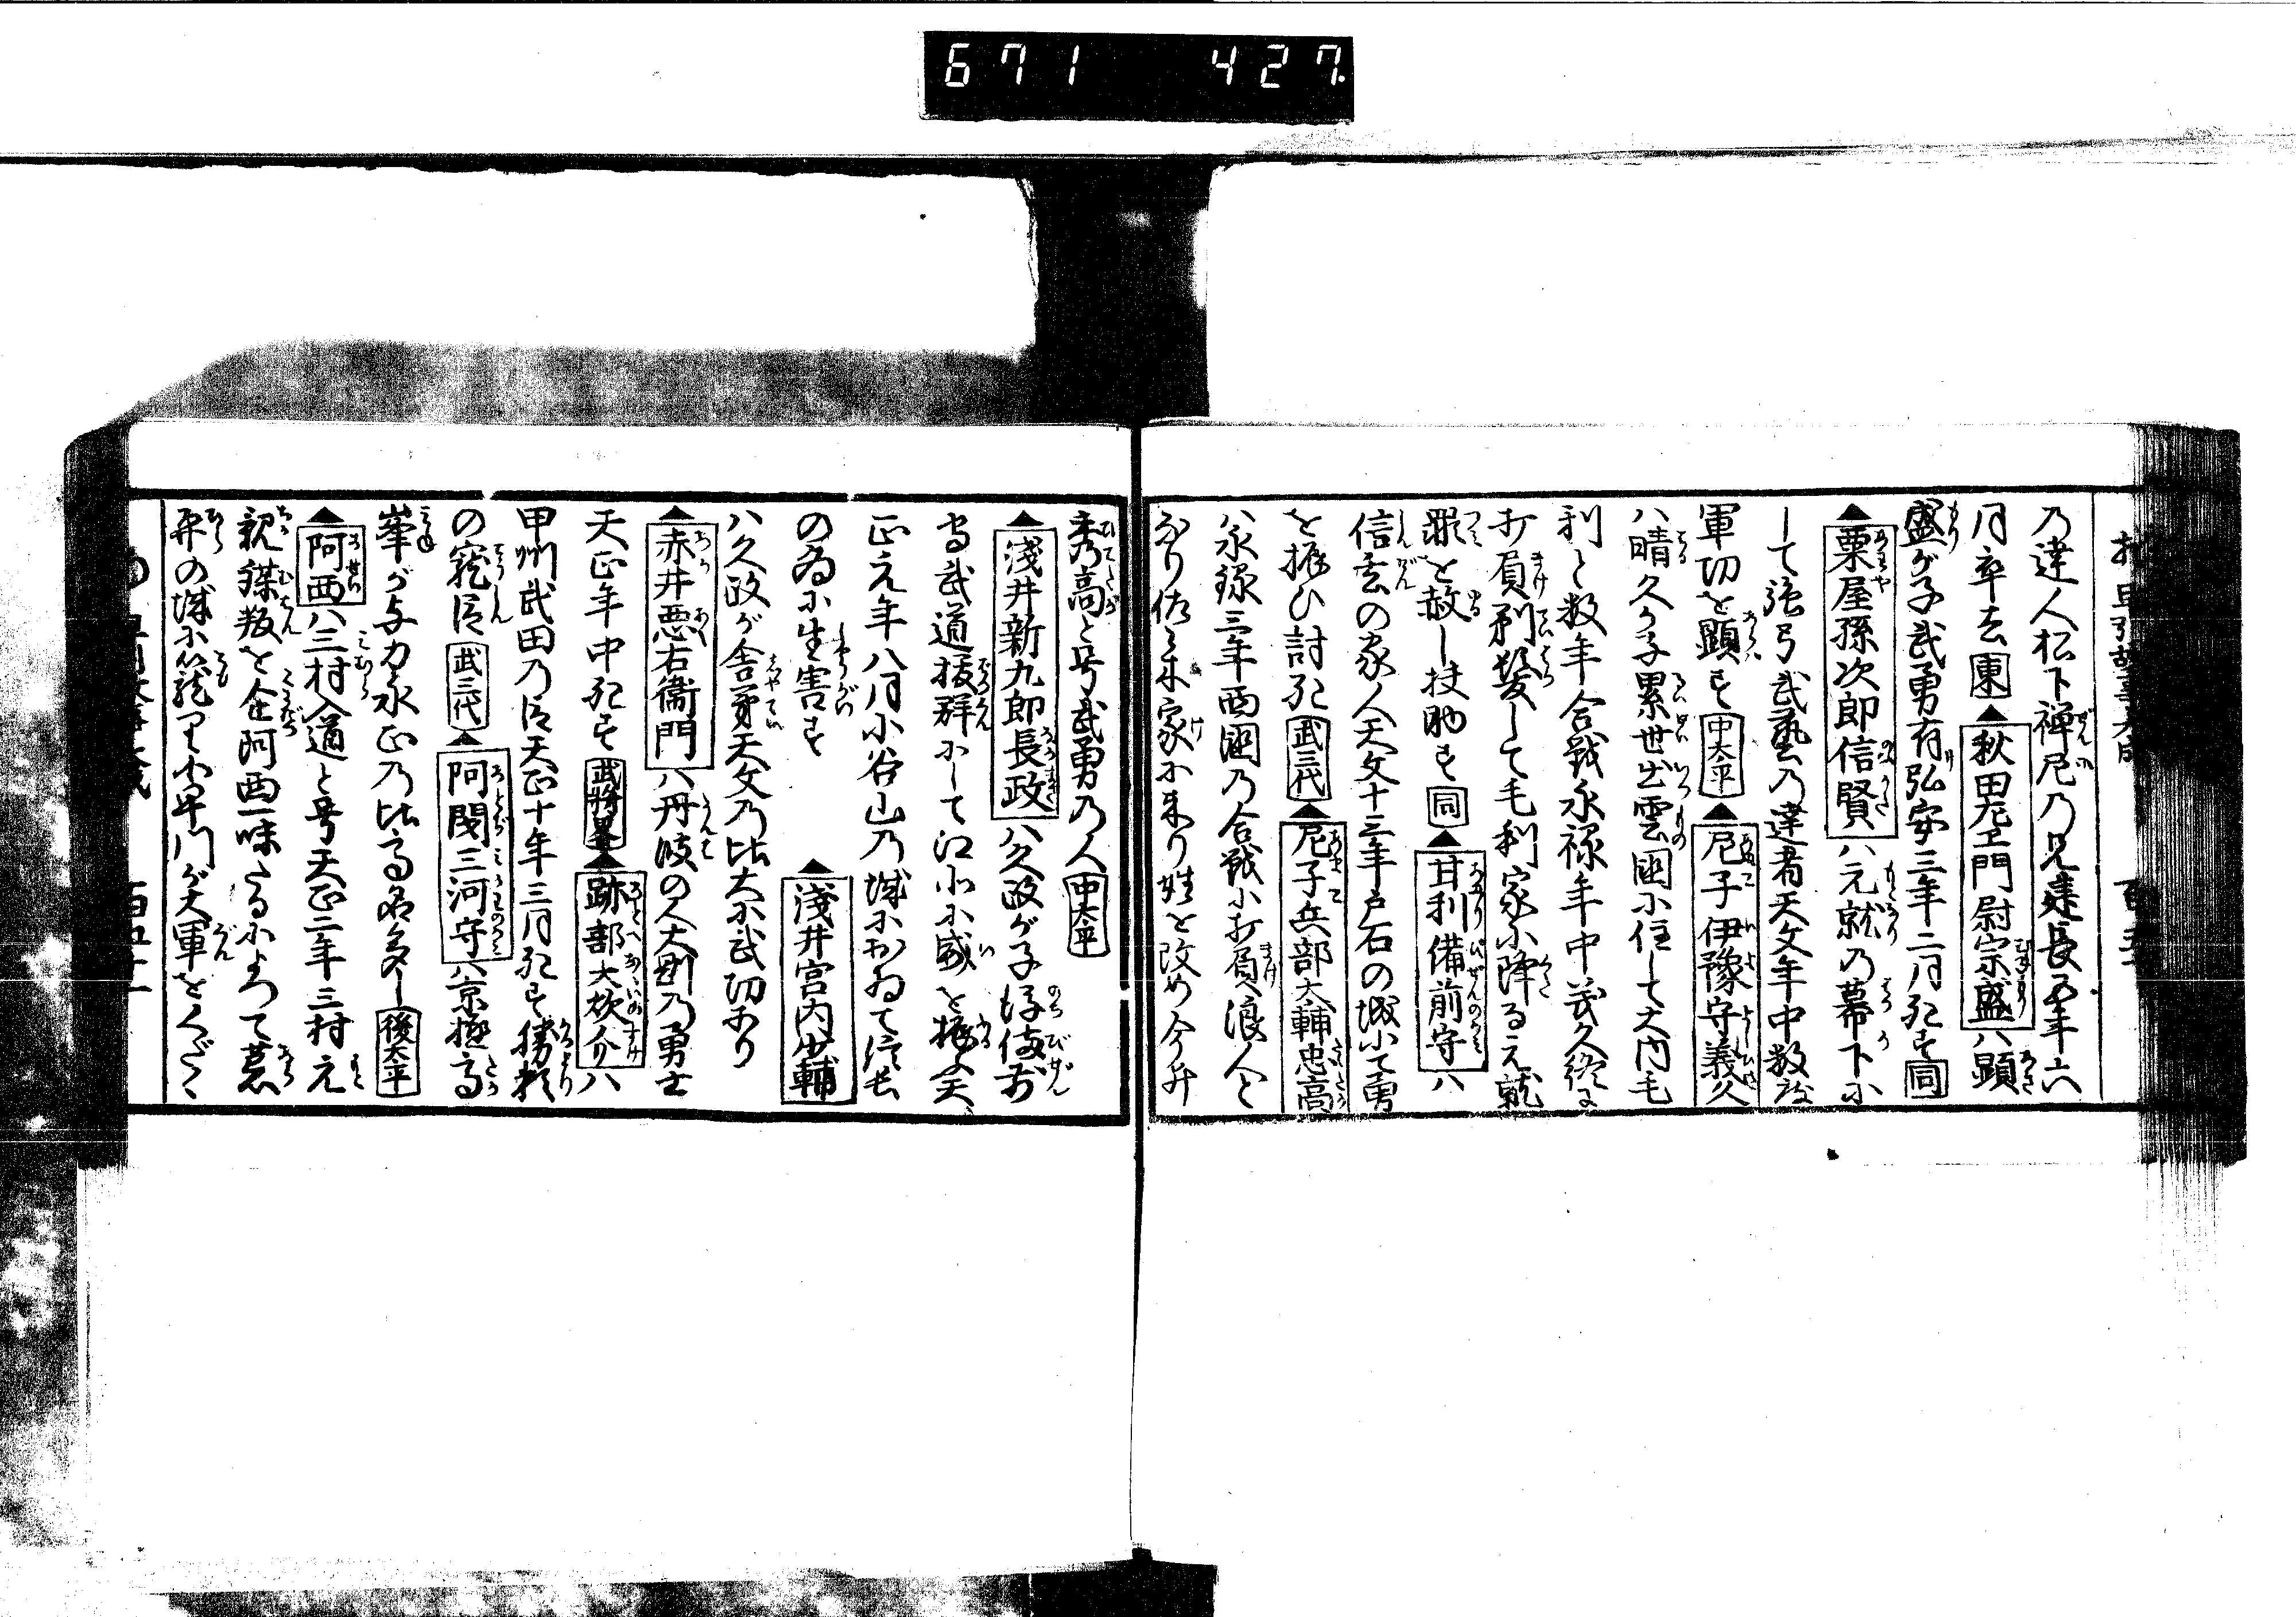 671 427
乃達人松下禅尼乃兄建長五年六
月卒去 東 ▲秋田左エ門尉宗盛ハ顕
盛が子武勇有弘安三年二月死す 同
▲粟屋孫次郎信賢ハ元就の幕下に
して強弓武藝の達者天文年中数度
軍切を顕す 中太平 ▲尼子伊豫守義久
ハ晴久が子累世出雲国に住して大内毛
利と数年合戦永禄年中義久終に
打負剃髪して毛利家に降る元就
罪を赦し扶助す 同 ▲甘利備前守ハ
信玄の家人天文十三年戸石の城にて勇
を振ひ討死 武三代 ▲尼子兵部大輔忠高
ハ永禄三年西国の合戦に打負浪人と
なり佐々木家に来り姓を改め今井
秀高と号武勇の人 中太平
▲淺井新九郎長政ハ久政が子後備前
守武道抜群にして江北に威を振ふ天
正元年八月小谷山の城において信長
の為に生害す ▲淺井宮内少輔
ハ久政が舎弟天文の比大に武切あり
▲赤井悪右衞門ハ丹波の人大剛の勇士
天正年中死す 武将 ▲跡部大炊介ハ
甲州武田の臣天正十年三月死す勝頼
の寵臣 武三代 ▲阿閉三河守ハ京極高
峯が与力永正の比高名多し 後太平
▲阿西ハ三村入道と号天正二年三村元
親謀叛を企阿西一味たるによつて荒
平の城に籠り小早川が大軍をくだく